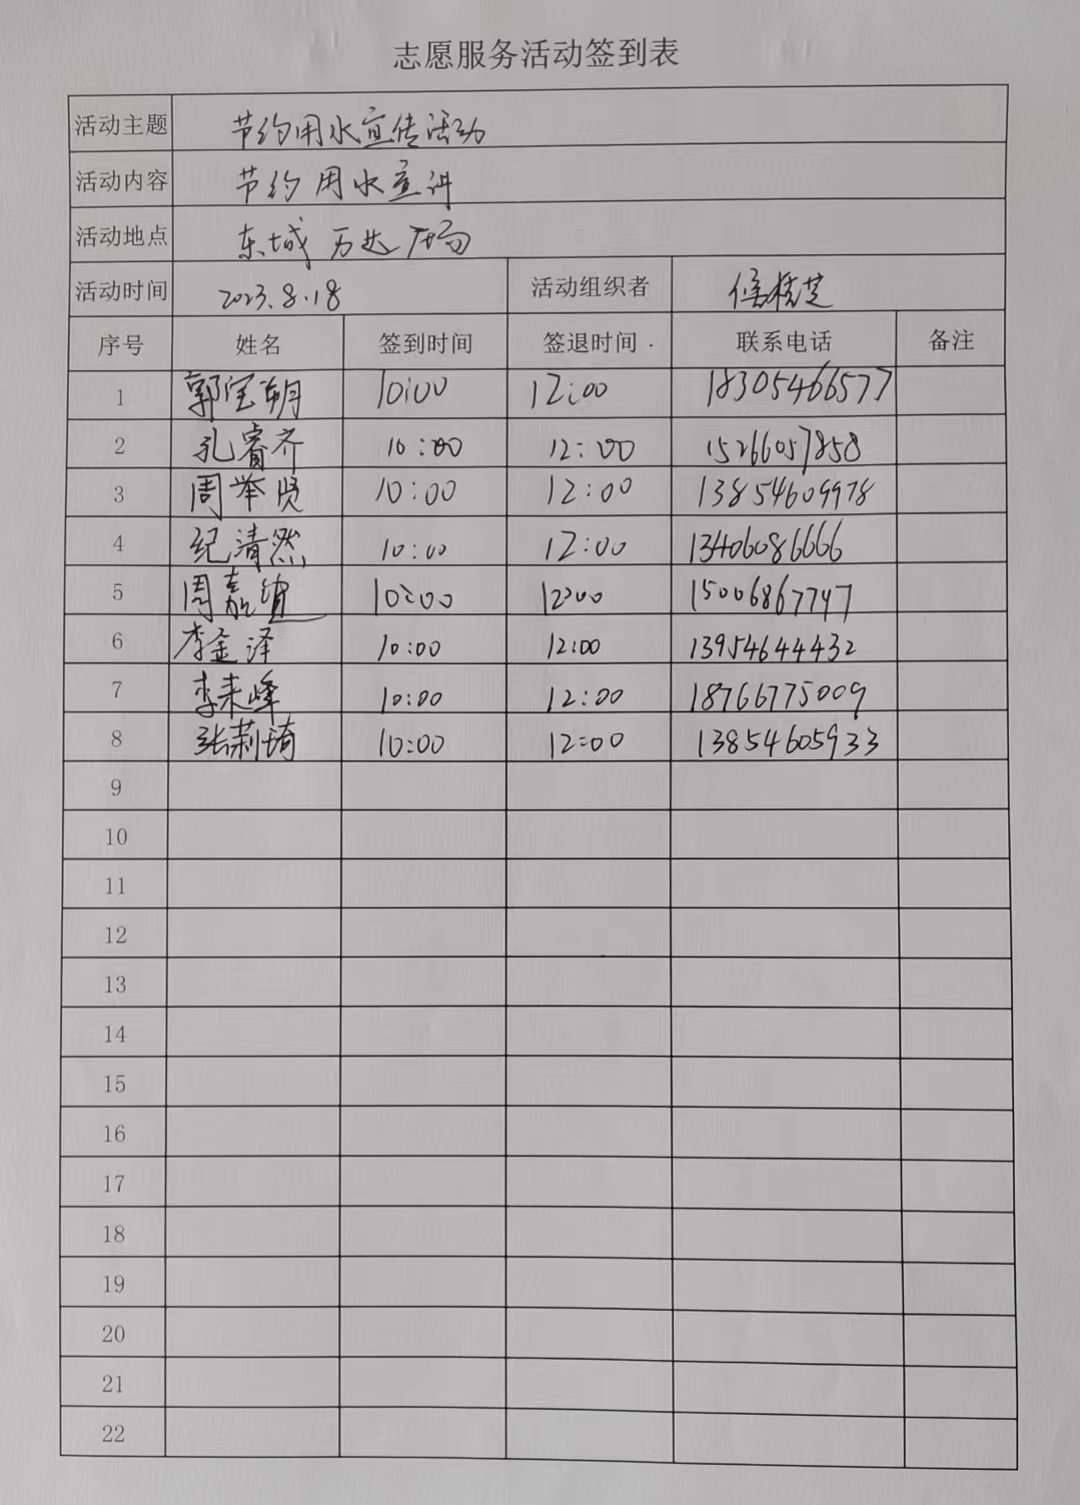 志愿服务活动签到表
活动主题 节约用水宣传活动
活动内容 节约用水宣讲
活动地点 东城万达广场
活动时间 2023.8.18 活动组织者 侯桂芝
序号 姓名 签到时间 签退时间 联系电话 备注
1 郭宝朔 10:00 12:00 18305466577
2 孔睿齐 10:00 12:00 15266057858
3 周举贤 10:00 12:00 13854609978
4 纪清然 10:00 12:00 13406086666
5 周嘉 10:00 12:00 15006867747
6 李金泽 10:00 12:00 13954644432
7 李来峰 10:00 12:00 18766775009
8 张莉琦 10:00 12:00 13854605933
9
10
11
12
13
14
15
16
17
18
19
20
21
22